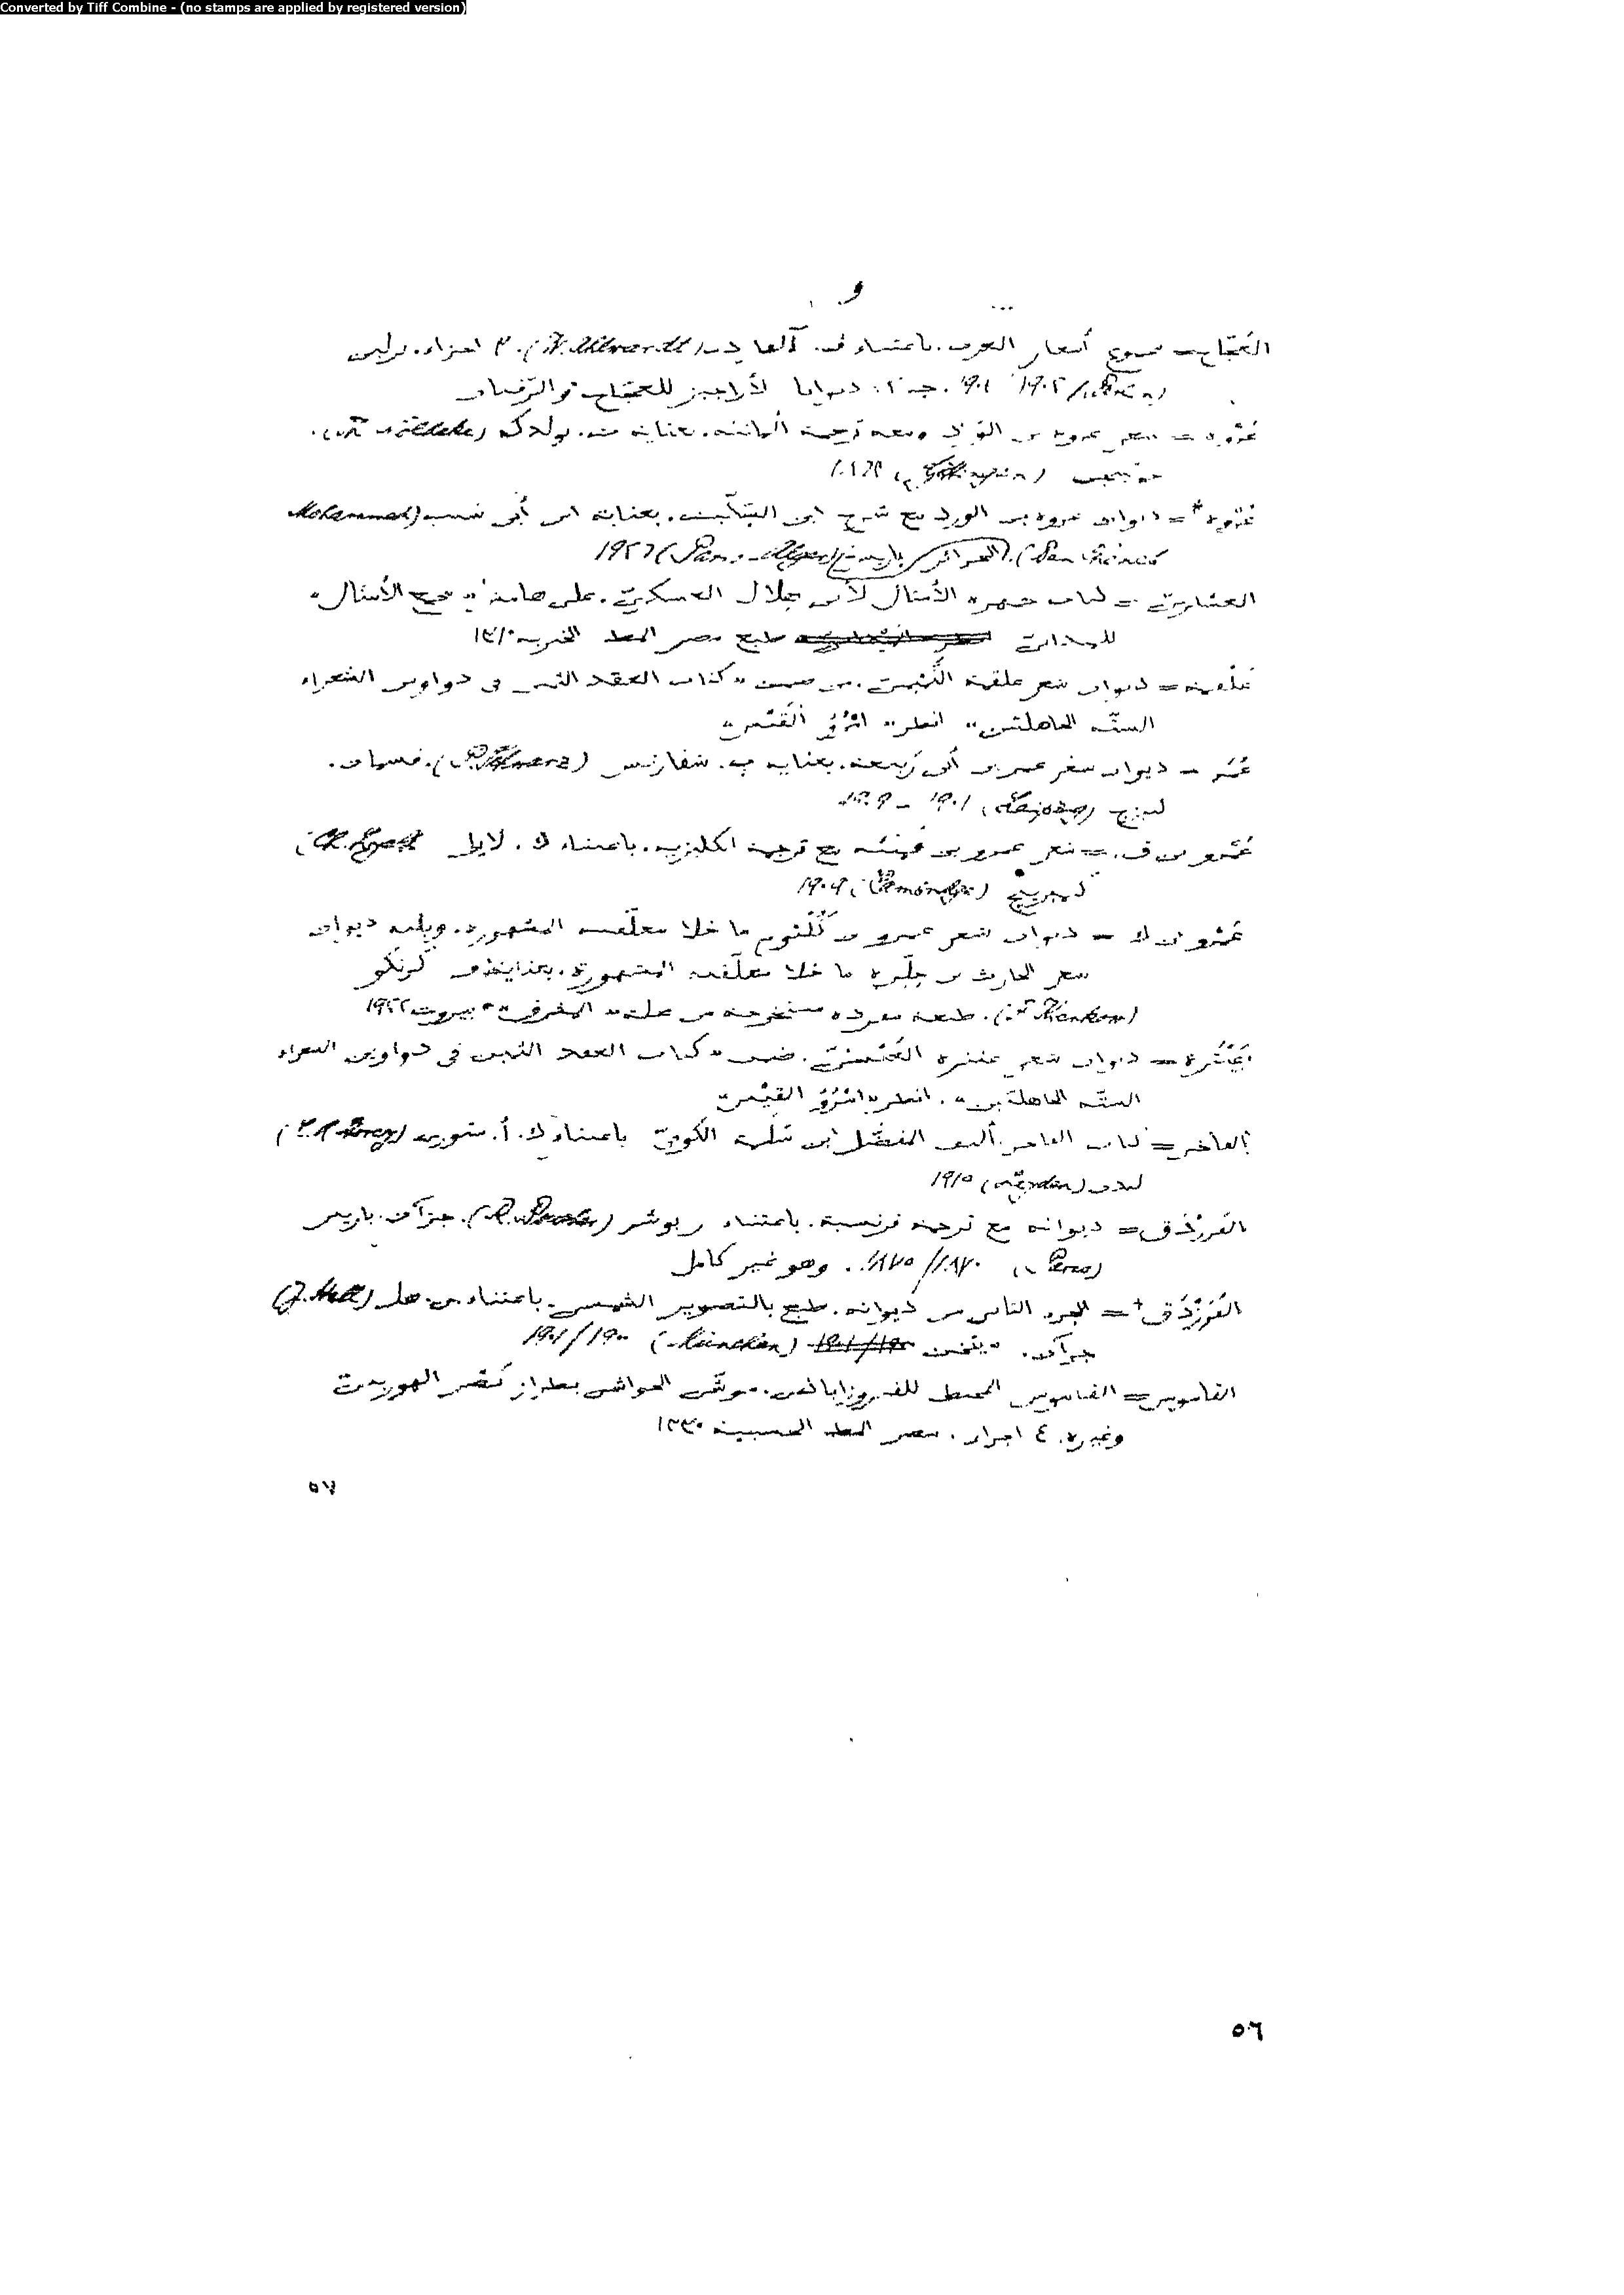 Converted by Tiff Combine - (no stamps are applied by registered version)
و
العَجّاج = مجموع أشعار العرب. باعتناء ف. آلفارت (W. Ahlwardt). ٣ اجزاء. برلين
(Berlin) ١٩٠٢/ ١٩٠٣. جـ ٢: ديوانا الأراجيز للعجّاج والزّفيان
عُرْوة = شعر عروة بن الورد ومعه ترجمة ألمانية. بعناية ت. نولدكه (T. Nöldeke).
(Göttingen)
عُرْوة + = ديوان عروة بن الورد مع شرح ابن السكّيت. بعناية ابن أبي شنب (Mohammed
Ben Cheneb). الجزائر باريس (Paris - Alger) ١٩٢٦
العسْكريّ = كتاب جمهرة الأمثال لأبي هلال العسكريّ. على هامشه „مجمع الأمثال"
للميدانيّ طبع مصر المط الخيرية ١٣١٠
عَلْقمة = ديوان شعر علقمة التَّميميّ. من ضمن „كتاب العقد الثمين في دواوين الشعراء
الستّة الجاهليّين" انظر „امْرُؤ القَيْس"
عُمَر = ديوان شعر عمر بن أبي رَبيعة. بعناية ب. شفارتس (P. Schwarz). قسمان.
ليبزج (Leipzig) ١٩٠١ - ١٩٠٩
عَمْرو بن ق. = شعر عمرو بن قميئة مع ترجمة انكليزية. باعتناء ك. لايل (Ch. Lyall)
كمبريج (Cambridge)
عَمْرو بن ك = ديوان شعر عمرو بن كُلْثوم ما خلا معلّقته المشهورة. ويليه ديوان
شعر الحارث بن حِلّزة ما خلا معلّقته المشهورة. بعناية ف كرنكو
(F. Krenkow). طبعة مفردة مستخرجة من مجلة „المشرق" بيروت ١٩٢٢
عَنْتَرة = ديوان شعر عنترة العَبْسيّ. ضمن „كتاب العقد الثمين في دواوين الشعراء
الستّة الجاهليّين". انظر „امْرُؤ القَيْس"
الفاخر = كتاب الفاخر. أليف المفضّل ابن سَلَمة الكوفيّ باعتناء ك. أ. ستوري (C. A. Storey)
ليدن (Leyden) ١٩١٥
الفَرَزْدَق = ديوانه مع ترجمة فرنسية. باعتناء ر بوشر (R. Boucher). جزآن. باريس
(Paris) ١٨٧٠/ ١٨٧٥. وهو غير كامل
الفَرَزْدَق + = الجزء الثاني من ديوانه. طبع بالتصوير الشمسي. باعتناء ي. هل (J. Hell)
جزآن. (München) ١٩٠٠/ ١٩٠١
القاموس = القاموس المحيط للفيروزاباديّ. موشّى الحواشي بطراز نصر الهورينيّ
وغيره. ٤ اجزاء. مصر المط الحسينية ١٣٣٠
٥٧
٥٦